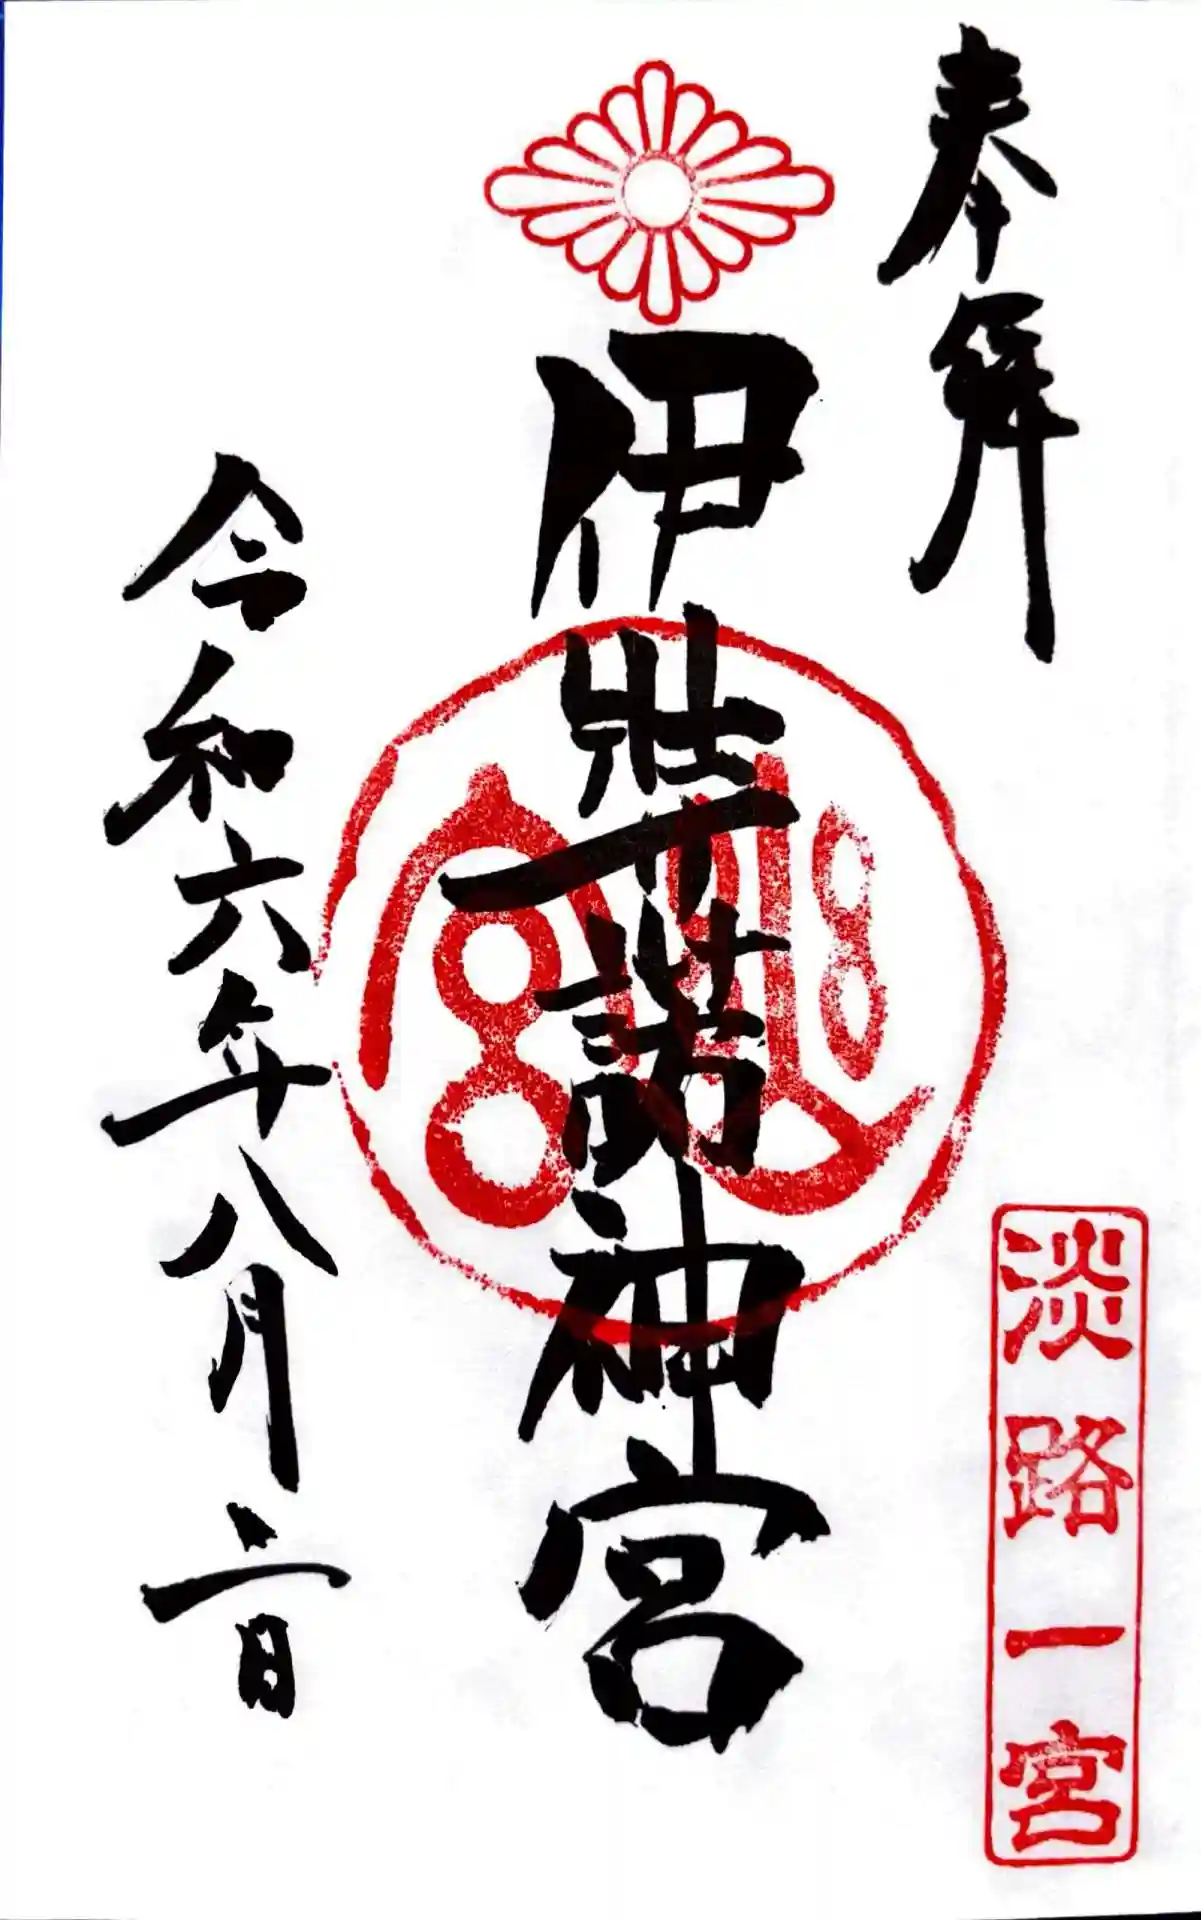 奉拝
淡路一宮
伊弉諾神宮
幽宮
令和六年八月二日